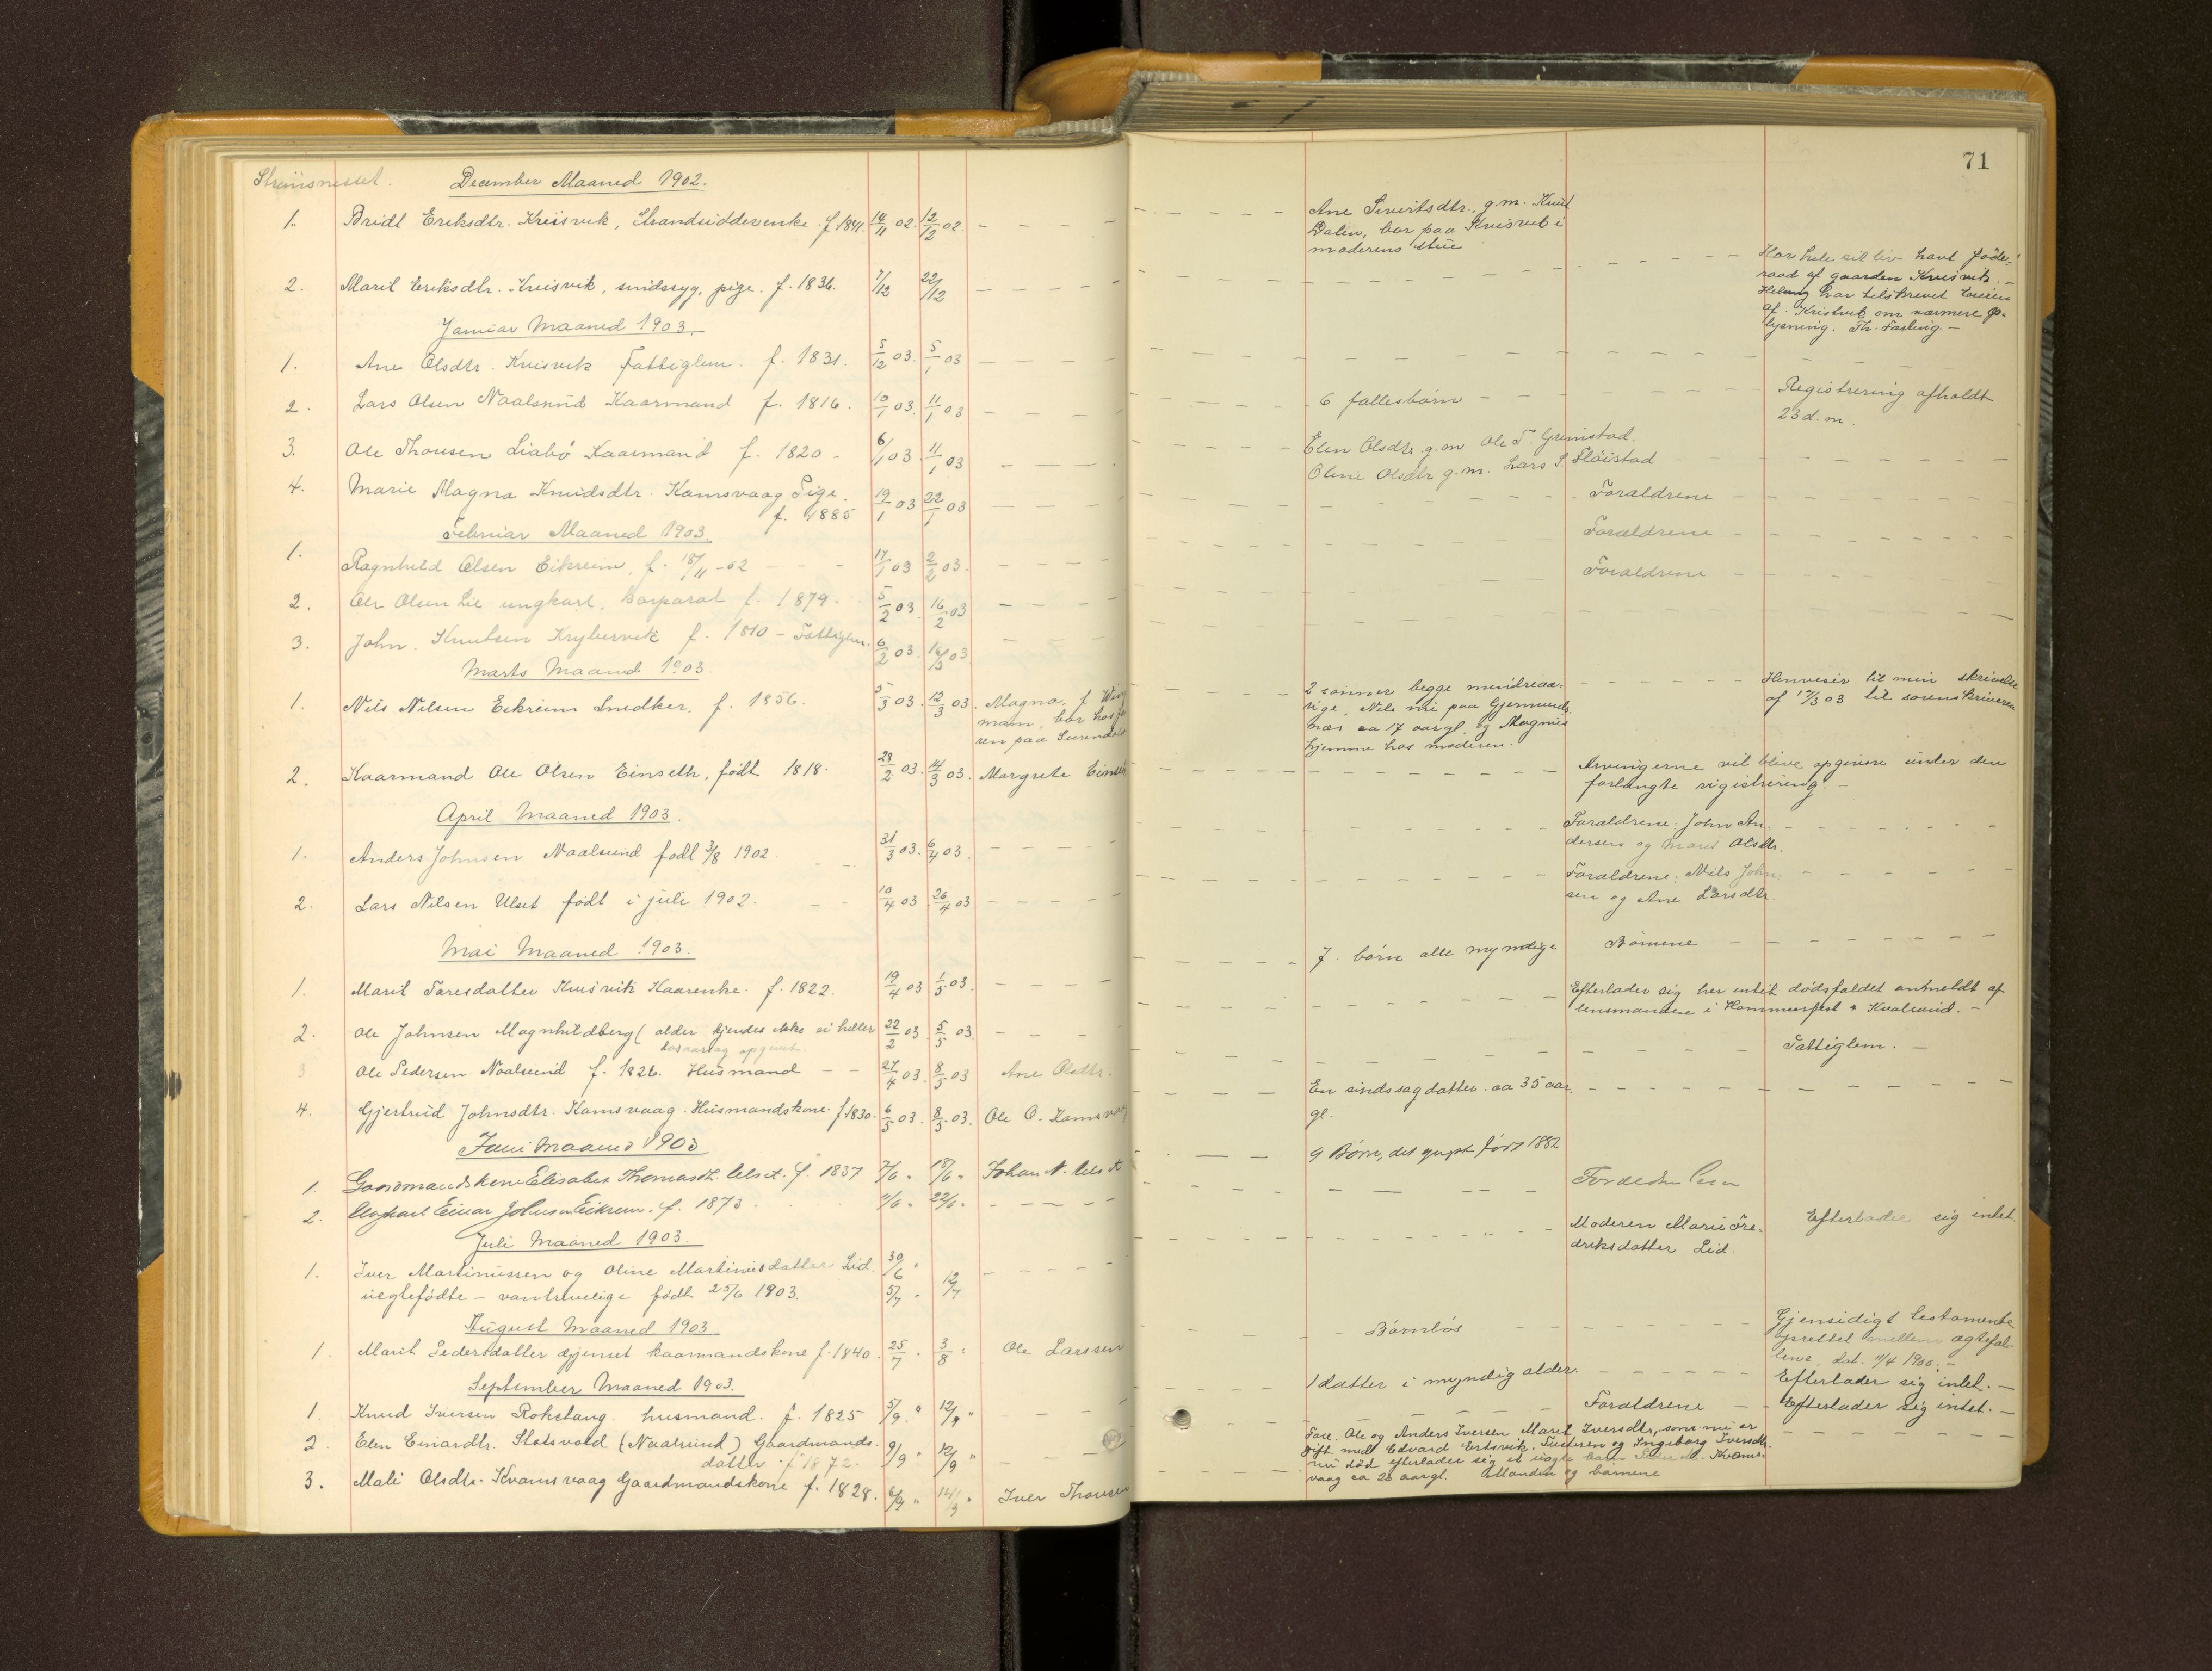 Straumsnesset. December Maaned 1902.
1. Bridt Eriksdtr. Krisvik, Strandsidderenke. f. 1841. 14/11 02. 12/12 02 - - - -
2. Marit Eriksdtr. Krisvik, sindssyg, pige. f. 1836. 7/12 22/12 - - - -
Januar Maaned 1903.
1. Ane Olsdtr. Krisvik Fattiglem. f. 1831. 5/12 03. 5/1 03 - - - -
2. Lars Olsen Naalsund Kaarmand f. 1816. 10/1 03. 11/1 03 - - - -
3. Ole Thousen Liabø Kaarmand f. 1820 - 6/1 03 11/1 03 - - -
4. Marie Magna Knudsdtr. Kamsvaag Pige. 19/1 03 22/1 03 - - -
f. 1885
Februar Maaned 1903.
1. Ragnhild Olsen Eikrem, f. 18/11 -02 - - 17/1 03 2/2 03. - - - -
2. Ole Olsen Lie ungkarl, korporal f. 1879. 5/2 03. 16/2 03 - - - -
3. John Knutsen f. 1810 - Fattiglem. 6/2 03. 03 -
Marts Maaned 1903.
1. Nils Nilsen Eikrem Snedker. f. 1856. 5/3 03. 12/3 03. Magna, f.
mam, bor hos
ren paa Surendal
2. Kaarmand Ole Olsen Einseth, født 1818. 28/2 03. 14/3 03. Margrete Einseth
April Maaned 1903.
1. Anders Johnsen Naalsund født 3/8 1902. - - 31/3 03. 6/4 03. - - - -
2. Lars Nilsen Ulset født i juli 1902. - - 10/4 03 26/4 03 - - - -
Mai Maaned 1903.
1. Marit Taresdatter Krisvik Kaarenke. f. 1822. 19/4 03 1/5 03. - - - -
2. Ole Johnsen Magnhildberg (alder kjendes ikke ei heller 22/2 03. 5/5 03. - - -
opgivet.
3 Ole Pedersen Naalsund f. 1826. Husmand - - 27/4 03. 8/5 03 Ane Olsdtr.
4. Gjertrud Johnsdtr. Kamsvaag. Husmandskone. f 1830. 6/5 03. 8/5 03. Ole O. Kamsvaag
Juni Maaned 1903
1. Gaardmandskone Elisabet Thomasdt. Ulset. f. 1837 7/6 " 18/6 " Johan N. Ulset
2. Ungkarl Einar Johnsen Eikrem. f. 1873. 11/6 " 22/6 " - - - -
Juli Maaned 1903.
1. Iver Martinussen og Oline Martinusdatter Lid. 30/6 " - - - -
uegtefødte - vantrevelige født 25/6 1903. 5/7 " 12/7
August Maaned 1903
1. Marit Pedersdatter Gjemset kaarmandskone f. 1840. 25/7 " 3/8 " Ole Larssen
September Maaned 1903.
1. Knud Iversen Rokstang. husmand. f. 1825 5/9 " 12/9 " - - -
2. Elen Einardtr. Stolsvold (Naalsund) Gaardmands- 9/9 " 12/9 " - -
datter f 1872.
3. Mali Olsdtr. Kvamsvaag Gaardmandskone f. 1828. 6/9 " 14/9 " Iver Thousen
71
Ane Sivertsdtr., g.m. Knut
Dalin, bor paa Krisvik i
moderens stue
Har hele sit liv havt føde-
raad af gaarden Krisvik. -
har tilskrevet
af Kristvik om nærmere op-
lysning. Th. Fasting. -
6 fællesbørn - - - - - - Registrering afholdt
23 d. m.
Elen Olsdtr. g.m. Ole T. Grimstad.
Oline Olsdtr g.m. Lars P. Fløistad
Forældrene
Forældrene
Forældrene
2 sønner begge mindreaa- Henviser til min skrivelse
rige, Nils nu paa Gjermunds- af 12/3 03 til sorenskriveren
næs ca 17 aar gl. og Magnus
hjemme hos moderen.
Arvingerne vil blive opgivne under den
forlangte registrering. -
Forældrene: John An-
dersen og Marit Olsdtr.
Forældrene: Nils John-
sen og Ane Larsdtr.
7 børn alle myndige Børnene
Efterlader sig her intet dødsfaldet anmeldt af
lensmanden i Hammerfest & Kvalsund. -
Fattiglem. -
En sindssyg datter ca 35 aar
gl.
9 Børn, det yngste født 1882
Moderen Marie Fre- Efterlader sig intet
driksdatter Lid.
Barnløs Gjensidigt testamente
oprettet mellem ægtefæl-
lene. dat. 11/4 1900. -
1 datter i myndig alder. Efterlader sig intet. -
Forældrene - - Efterlader sig intet. -
Tare, Ole og Anders Iversen Marit Iversdtr., som nu er
gift med Edvard Ertsvik, Tusteren og Ingeborg Iversdtr.
nu død efterlader sig et uægte barn Kvams-
vaag ca 20 aar gl. Manden og børnene